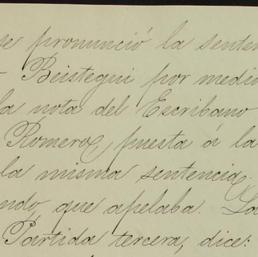 se pronunció la senten
- Beistegui por medio
la nota del Escribano
Romero, puesta á la
la misma sentencia.
ndo, que apelaba. La
Partida tercera, dice: